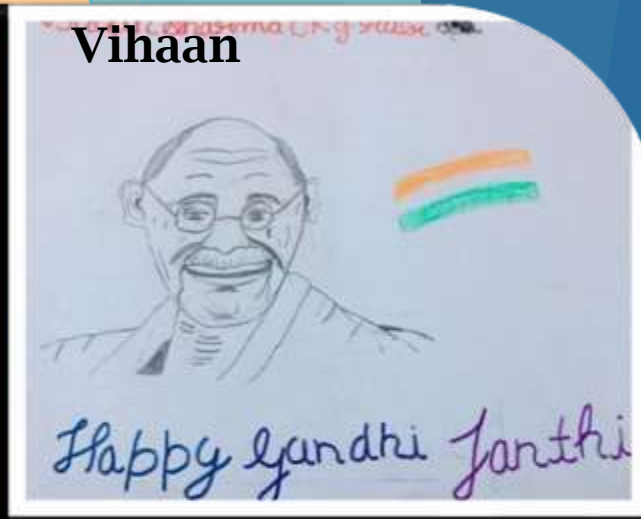 Vihaan
Happy Gandhi Janthi